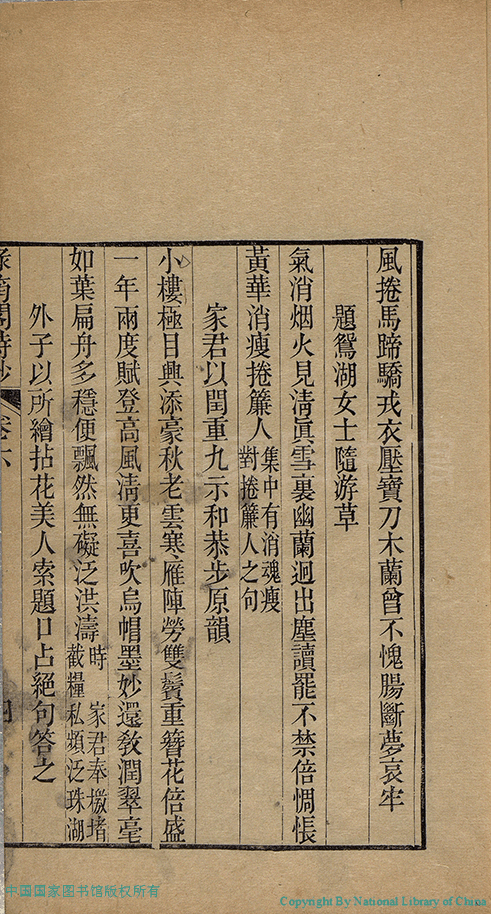 風捲馬蹄驕戎衣壓寶刀木蘭曾不愧腸斷夢哀牢
題鴛湖女士隨游草
氣消烟火見淸眞雪裏幽蘭迥出塵讀罷不禁倍惆悵
黃華消瘦捲簾人集中有消魂瘦對捲簾人之句
家君以閏重九示和恭步原韻
小樓極目興添豪秋老雲寒雁陣勞雙鬢重簪花倍盛
一年兩度賦登高風淸更喜吹烏帽墨妙還敎潤翠毫
如葉扁舟多穩便飄然無礙泛洪濤時家君奉檄堵截糧私頻泛珠湖
外子以所繪拈花美人索題口占絕句答之
閣詩鈔 卷六 四
中国国家图书馆版权所有
Copyright By National Library of China